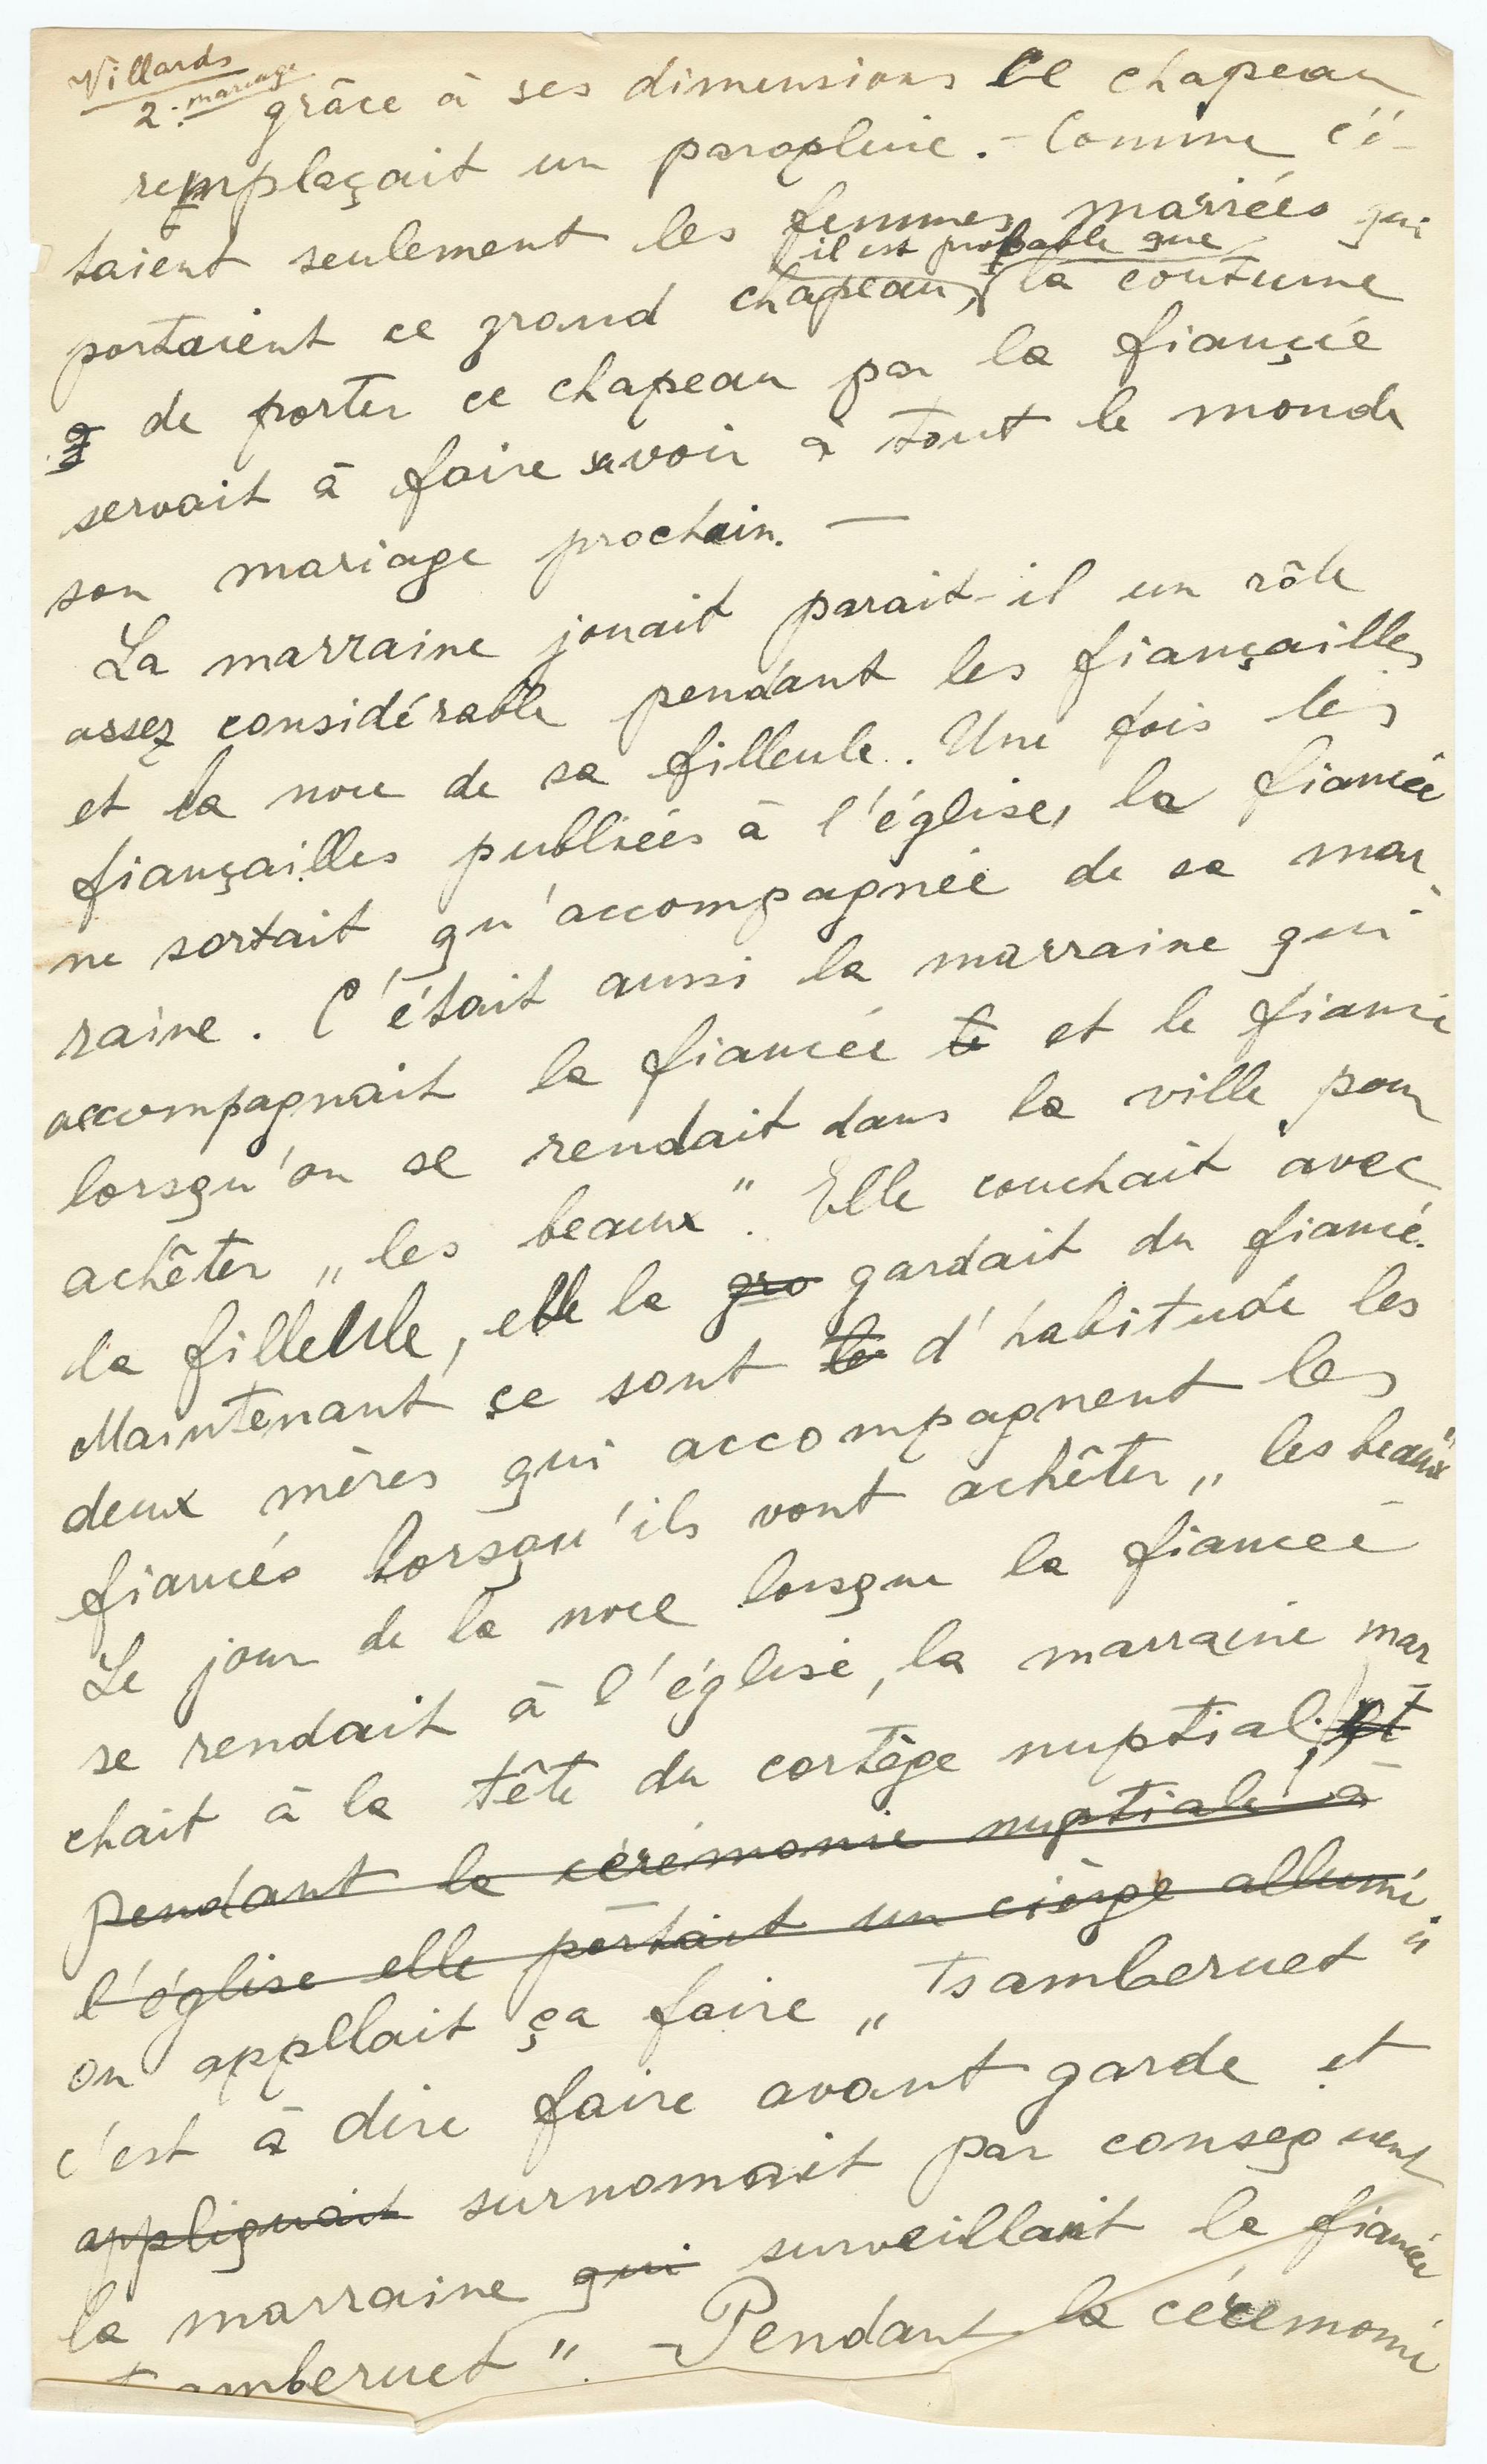 Villards
2. mariage
grâce à ses dimensions ce chapeau
remplaçait un parapluie. – Comme c'é-
taient seulement les femmes mariées qui
il est probable que
portaient ce grand chapeau, la coutume
de porter ce chapeau par la fiancée
servait à faire savoir à tout le monde
son mariage prochain. —
La marraine jouait parait-il un rôle
assez considérable pendant les fiançailles
et la noce de sa filleule. Une fois les
fiançailles publiées à l'église, la fiancée
ne sortait qu'accompagnée de sa mar-
raine. C'était aussi la marraine qui
accompagnait la fiancée le et le fiancé
lorsqu'on se rendait dans la ville pour
achêter „les beaux". Elle couchait avec
la filleule, elle la gro gardait du fiancé.
Maintenant ce sont les d'habitude les
deux mères qui accompagnent les
fiancés lorsqu'ils vont achêter „les beaux"
Le jour de la noce lorsque la fiancée
se rendait à l'église, la marraine mar-
chait à la tête du cortège nuptial; et
pendant la cérémonie nuptiale à
l'église elle portait un cièrge allumé.
on appllait ça faire „tsamberuet"
c'est à dire faire avant garde et
appliquait surnomait par consequent
la marraine qui surveillait la fiancée
tsamberuet". – Pendant la céremonie